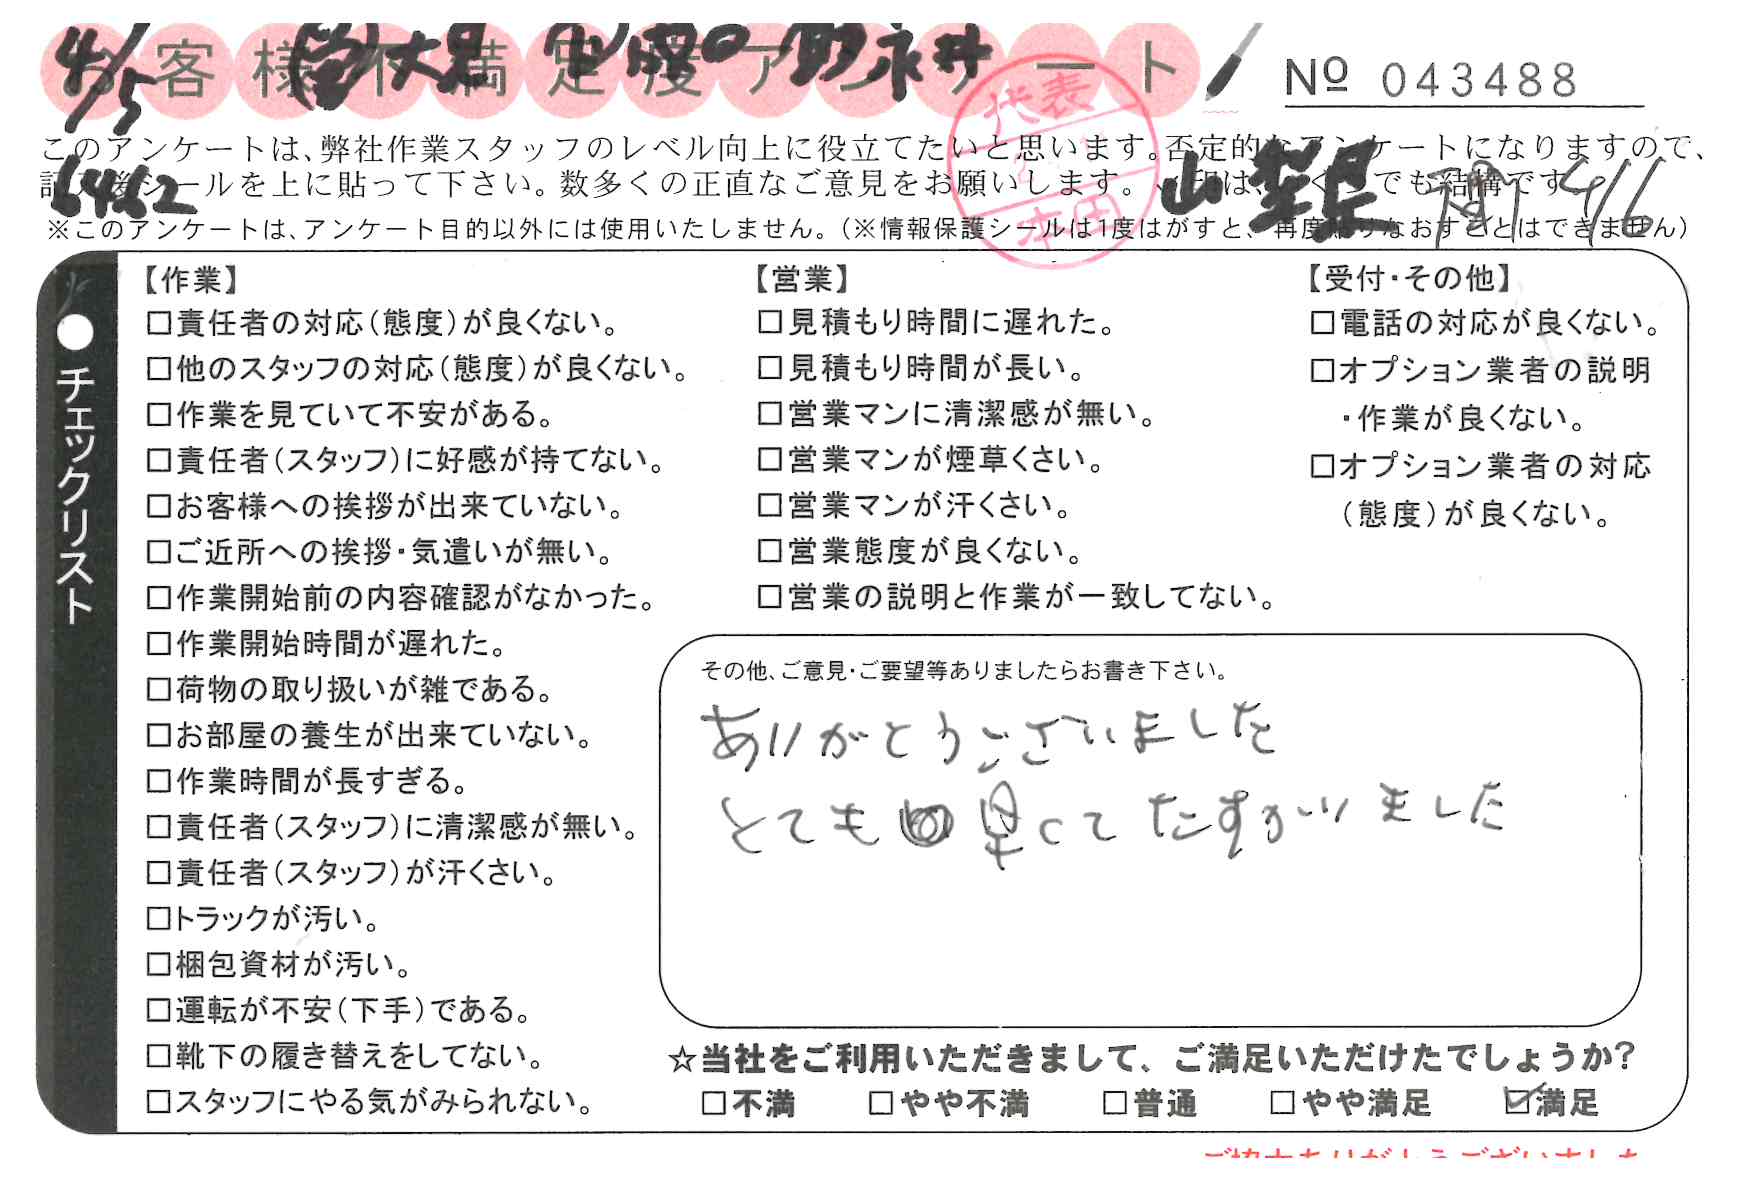 お客様不満足度アンケート
4/5
No 043488
代表
本田
このアンケートは、弊社作業スタッフのレベル向上に役立てたいと思います。否定的なアンケートになりますので、
記入後シールを上に貼って下さい。数多くの正直なご意見をお願いします。 でも結構です
6462
山梨県
4/6
※このアンケートは、アンケート目的以外には使用いたしません。(※情報保護シールは1度はがすと、再度貼りなおすことはできません)
●チェックリスト
【作業】
□責任者の対応(態度)が良くない。
□他のスタッフの対応(態度)が良くない。
□作業を見ていて不安がある。
□責任者(スタッフ)に好感が持てない。
□お客様への挨拶が出来ていない。
□ご近所への挨拶・気遣いが無い。
□作業開始前の内容確認がなかった。
□作業開始時間が遅れた。
□荷物の取り扱いが雑である。
□お部屋の養生が出来ていない。
□作業時間が長すぎる。
□責任者(スタッフ)に清潔感が無い。
□責任者(スタッフ)が汗くさい。
□トラックが汚い。
□梱包資材が汚い。
□運転が不安(下手)である。
□靴下の履き替えをしてない。
□スタッフにやる気がみられない。
【営業】
□見積もり時間に遅れた。
□見積もり時間が長い。
□営業マンに清潔感が無い。
□営業マンが煙草くさい。
□営業マンが汗くさい。
□営業態度が良くない。
□営業の説明と作業が一致してない。
【受付・その他】
□電話の対応が良くない。
□オプション業者の説明
・作業が良くない。
□オプション業者の対応
(態度)が良くない。
その他、ご意見・ご要望等ありましたらお書き下さい。
ありがとうございました
とても早くてたすかりました
☆当社をご利用いただきまして、ご満足いただけたでしょうか?
□不満 □やや不満 □普通 □やや満足 ☑満足
ご協力ありがとうございました